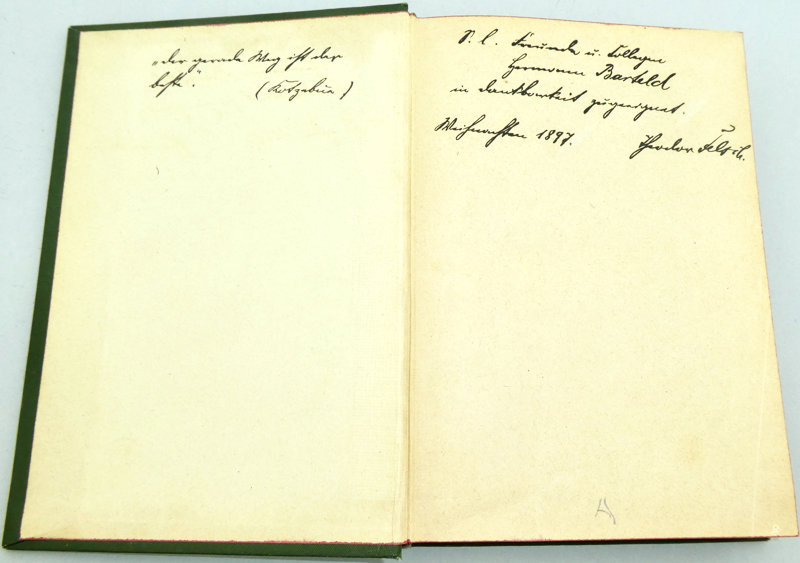 „Der gerade Weg ist der
beste." (Kotzebue)
S. l. Freunde u. Collegen
Hermann Barteld
in Dankbarkeit zugeeignet.
Weihnachten 1897. Theodor